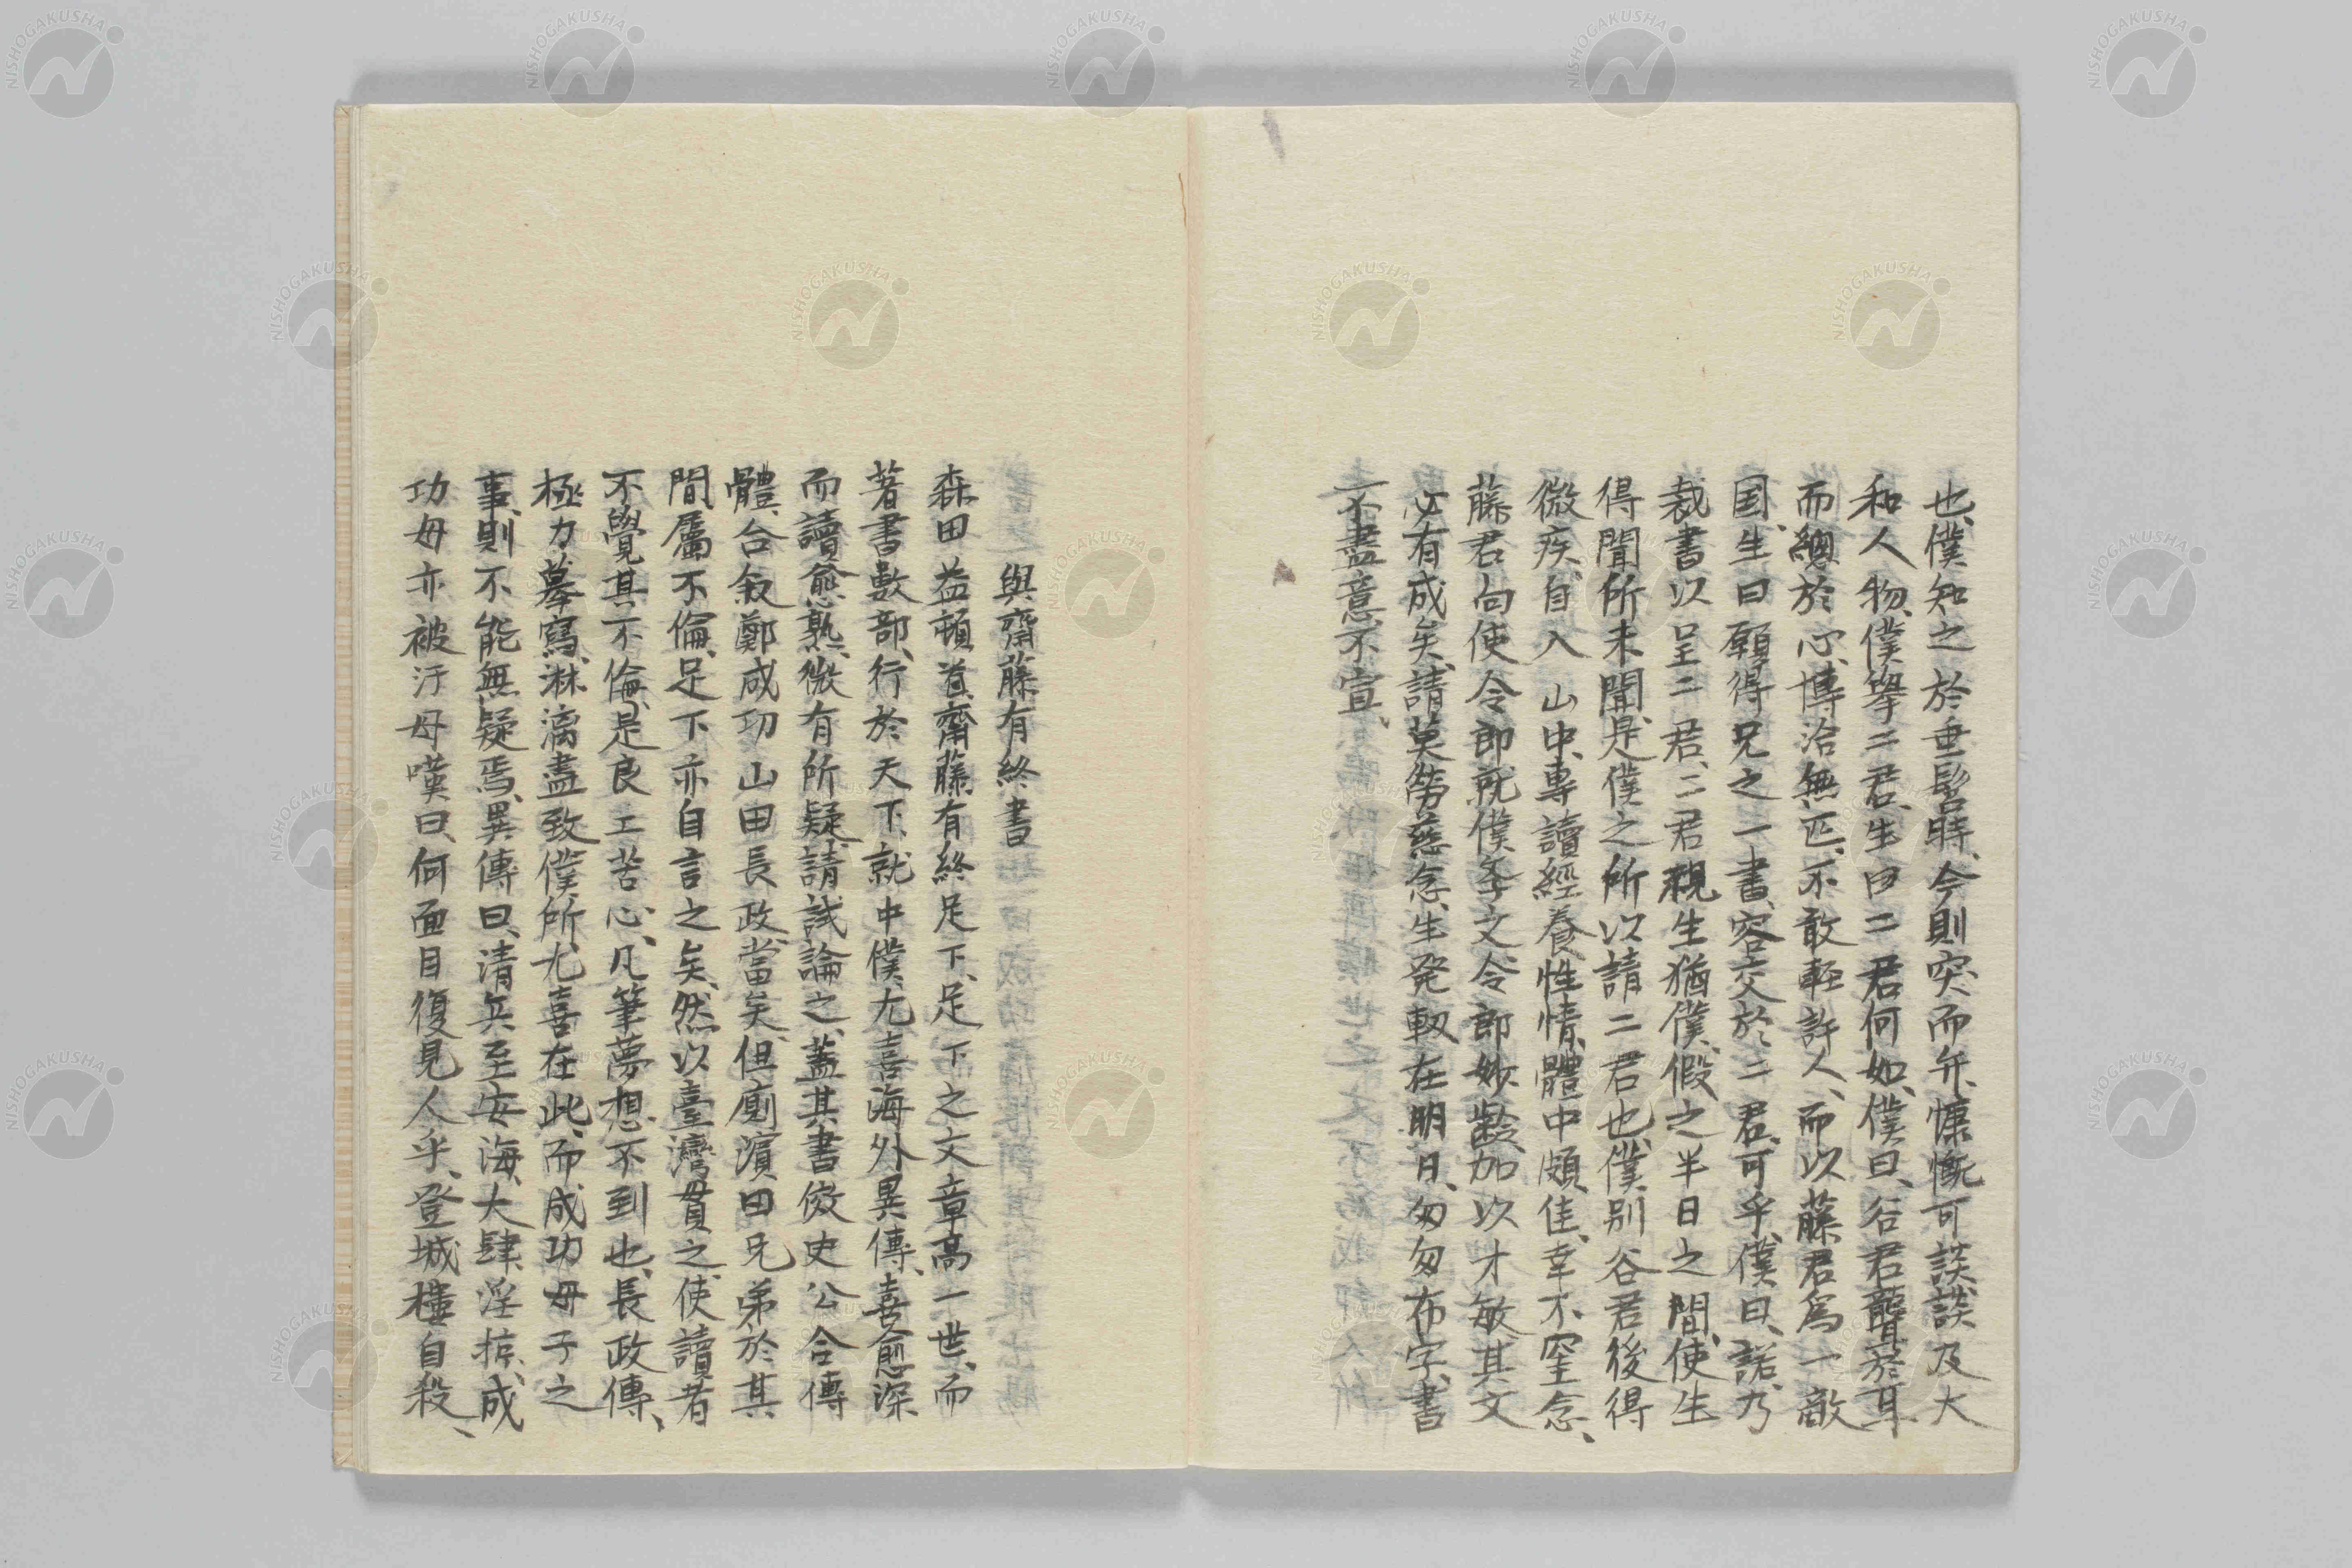 也、僕知之於垂髫時、今則突而弁、慷慨可談、談及大
和人物、僕挙二君、生曰二君何如、僕曰、谷君聾於耳
而聰於心、博洽無匹、不敢輕許人、而以藤君爲一敵
国、生曰願得兄之一書、容交於二君、可乎、僕曰、諾、乃
裁書以呈二君、二君視生猶僕、假之半日之間、使生
得聞所未聞、是僕之所以請二君也、僕別谷君後得
微疾、自入山中、專讀經養性情、體中頗佳、幸不窐念、
藤君向使令郎就僕學文、令郎妙齡、加以才敏、其文
必有成矣、請莫勞慈念、生発軔在明日、匆匆布字、書
不盡意、不宣、
與齋藤有終書
森田益頓首、齋藤有終足下、足下之文章高一世、而
著書數部、行於天下、就中僕尤喜海外異傳、喜愈深
而讀愈熟、微有所疑、請試論之、蓋其書倣史公合傳
體、合叙鄭成功山田長政、當矣、但廁濵田兄弟於其
間、屬不倫、足下亦自言之矣、然以臺灣貫之、使讀者
不覺其不倫、是良工苦心、凡筆夢想不到也、長政傳、
極力摹寫、淋漓盡致、僕所尤喜在此、而成功母子之
事、則不能無疑焉、異傳曰、清兵至安海、大肆淫掠、成
功母亦被汙、母嘆曰、何面目復見人乎、登城樓自殺、
NISHOGAKUSHA